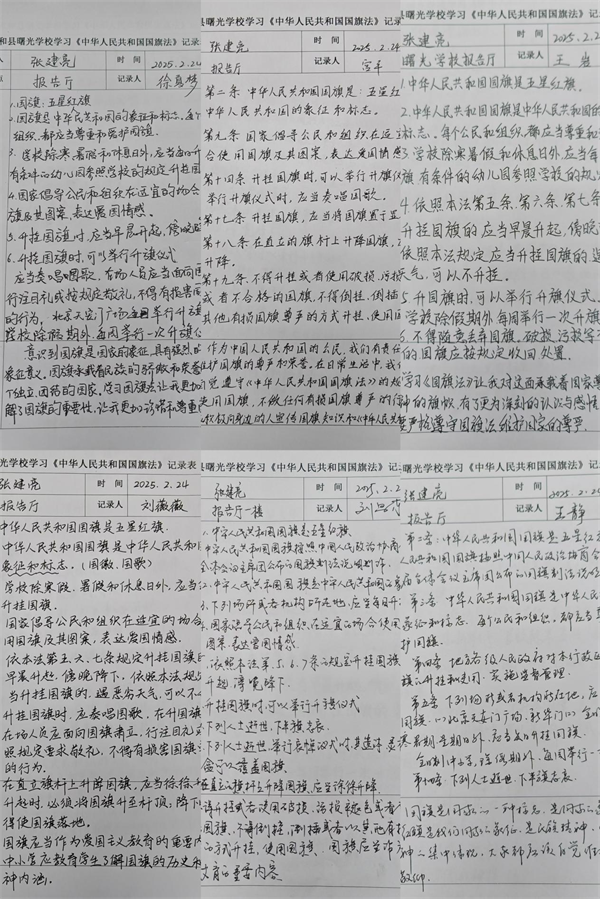 和县曙光学校学习《中华人民共和国国旗法》记录
张建亮 时 间 2025.2.24
报告厅 记录人
1.国旗:五星红旗
2.国旗是中华人民共和国的象征和标志。每个
组织,都应当尊重和爱护国旗。
3.学校除寒、暑假和休息日外,应当每日升
有条件的幼儿园参照学校的规定升挂国
4.国家倡导公民和组织在适宜的场合
旗及其图案,表达爱国情感。
5.升挂国旗时,应当早晨升起,傍晚
6.升挂国旗时,可以举行升旗仪式
应当奏唱国歌。在场人员应当面向国
行注目礼或按规定敬礼,不得有损害国
的行为。北京天安门广场 举行升旗
学校除假期外,每周举行一次升旗仪
意识到国旗是国家的象征,具有强烈的
象征意义。国旗承载着民族的
个独立、团结的国家,学习国旗法让我更加
解了国旗的重要性,让我更加
县曙光学校学习《中华人民共和国国旗法》记
张建亮 时 间 2025.2.24
报告厅 记录人
第二条 中华人民共和国国旗是五星红
中华人民共和国的象征和标志。
第九条 国家倡导公民和组织在适
合使用国旗及其图案,表达爱国情感
第十四条 升挂国旗时,可以举行升旗仪
举行升旗仪式时,应当奏唱国歌。
第十七条 升挂国旗,应当将国旗置于显
第十八条 在直立的旗杆上升降国旗,
升降。
第十九条.不得升挂或者使用破损、污损
或者不合格的国旗,不得倒挂、倒插
其他有损国旗尊严的方式升挂、使用国
作为中国人民共和国的公民,我们有责任
护国旗的尊严和荣誉。在日常生活中,我
觉遵守《中华人民共和国国旗法》的规
使用国旗,不做任何有损国旗尊严的
极向身边的人宣传国旗知识和《中华人民共
县曙光学校学习《中华人民共和国国旗法》记录
张建亮 时 间 2025.2.
曙光学校报告厅 记录人 王
1.中华人民共和国国旗是五星红旗。
2.中华人民共和国国旗是中华人民共和国的
标志。每个公民和组织,都应当尊重和
3.学校除寒暑假和休息日外,应当每
旗。有条件的幼儿园参照学校的规
4.依照本法第五条、第六条、第七条
升挂国旗的应当早晨升起,傍晚
依照本法规定应当升挂国旗的,遇
天气,可以不升挂。
5.升国旗时,可以举行升旗仪式。
学校除假期外,每周举行一次升旗
6.不得随意丢弃国旗,破损、污损等
的国旗应按规定收回处置。
学习《国旗法》让我对这面承载着国家尊
神的旗帜,有了更为深刻的认识与感悟
要严格遵守国旗法,维护国家的尊严。
光学校学习《中华人民共和国国旗法》记录表
张建亮 时 间 2025.2.24
报告厅 记录人 刘薇薇
中华人民共和国国旗是五星红旗.
中华人民共和国国旗是中华人民共和国
象征和标志。(国徽、国歌)
学校除寒假、暑假和休息日外,应当
升挂国旗。
国家倡导公民和组织在适宜的场合
用国旗及其图案,表达爱国情感。
依本法第五、六、七条规定升挂国旗
早晨升起,傍晚降下,依照本法规
当升挂国旗的.遇恶劣天气,可以不
升挂国旗时,应奏唱国歌。在升国旗
在场人员应面向国旗肃立,行注目礼
照规定要求敬礼,不得有损害国旗
的行为。
在直立旗杆上升降国旗,应当徐徐
升起时,必须将国旗升至杆顶,降下
得使国旗落地。
国旗应当作为爱国主义教育的重要内
中小学应教育学生了解国旗的历史和
神内涵。
县曙光学校学习《中华人民共和国国旗法》记录
张建亮 时 间 2025.2.2
报告厅一楼 记录人
1.中华人民共和国国旗是五星红旗
中华人民共和国国旗按照中国人民政治协商
全体会议主席团公布的国旗制法说明制作.
2.中华人民共和国国旗是中华人民共和国的
3.下列场所或者机构所在地,应当每日升
4.国家倡导公民和组织,在适宜的场合使用
图案,表达爱国情感
依照本法第5、6、7条的规定升挂国旗
升起,傍晚降下
升挂国旗时,可以举行升旗仪式
下列人士逝世,下半旗志哀.
下列人士逝世,举行哀悼仪式时,其遗体、灵
盒可以覆盖国旗
在直立的旗杆上升降国旗,应当徐徐升降.
得升挂或者使用破损、污损、褪色或者
国旗,不得倒挂、倒插或者以其他有
的方式升挂、使用国旗. 国旗应当作
义教育的重要内容
县曙光学校学习《中华人民共和国国旗法》记
张建亮 时 间 2025.2.24
报告厅 记录人 王静
第二条:中华人民共和国国旗是五星红
人民共和国国旗按照中国人民政治协商会
届全体会议主席团公布的国旗制法说
第三条 中华人民共和国国旗是中华人民
象征和标志 每个公民和组织,都应当
护国旗
第四条 地方各级人民政府对本行政
旗的升挂和使用,实施监督管理.
第五条 下列场所或者机构所在地,应
国旗.(1)北京天安门广场、新华门(2)
寒暑期、星期日外,应当每日升挂国旗
全日制中小学,除假期外,每周举行一
第十四条.下列人士逝世,下半旗志哀.
国旗是国家的一种标志,是国家的